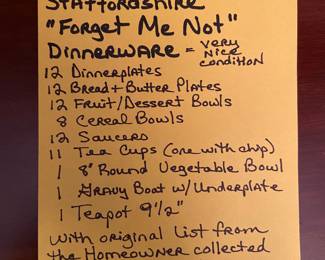 Staffordshire
"Forget Me Not"
Dinnerware = very nice condition
12 Dinnerplates
12 Bread + Butter Plates
12 Fruit/Dessert Bowls
8 Cereal Bowls
12 Saucers
11 Tea Cups (one with chip)
1 8" Round Vegetable Bowl
1 Gravy Boat w/ Underplate
1 Teapot 9 1/2"
With original List from
the Homeowner collected